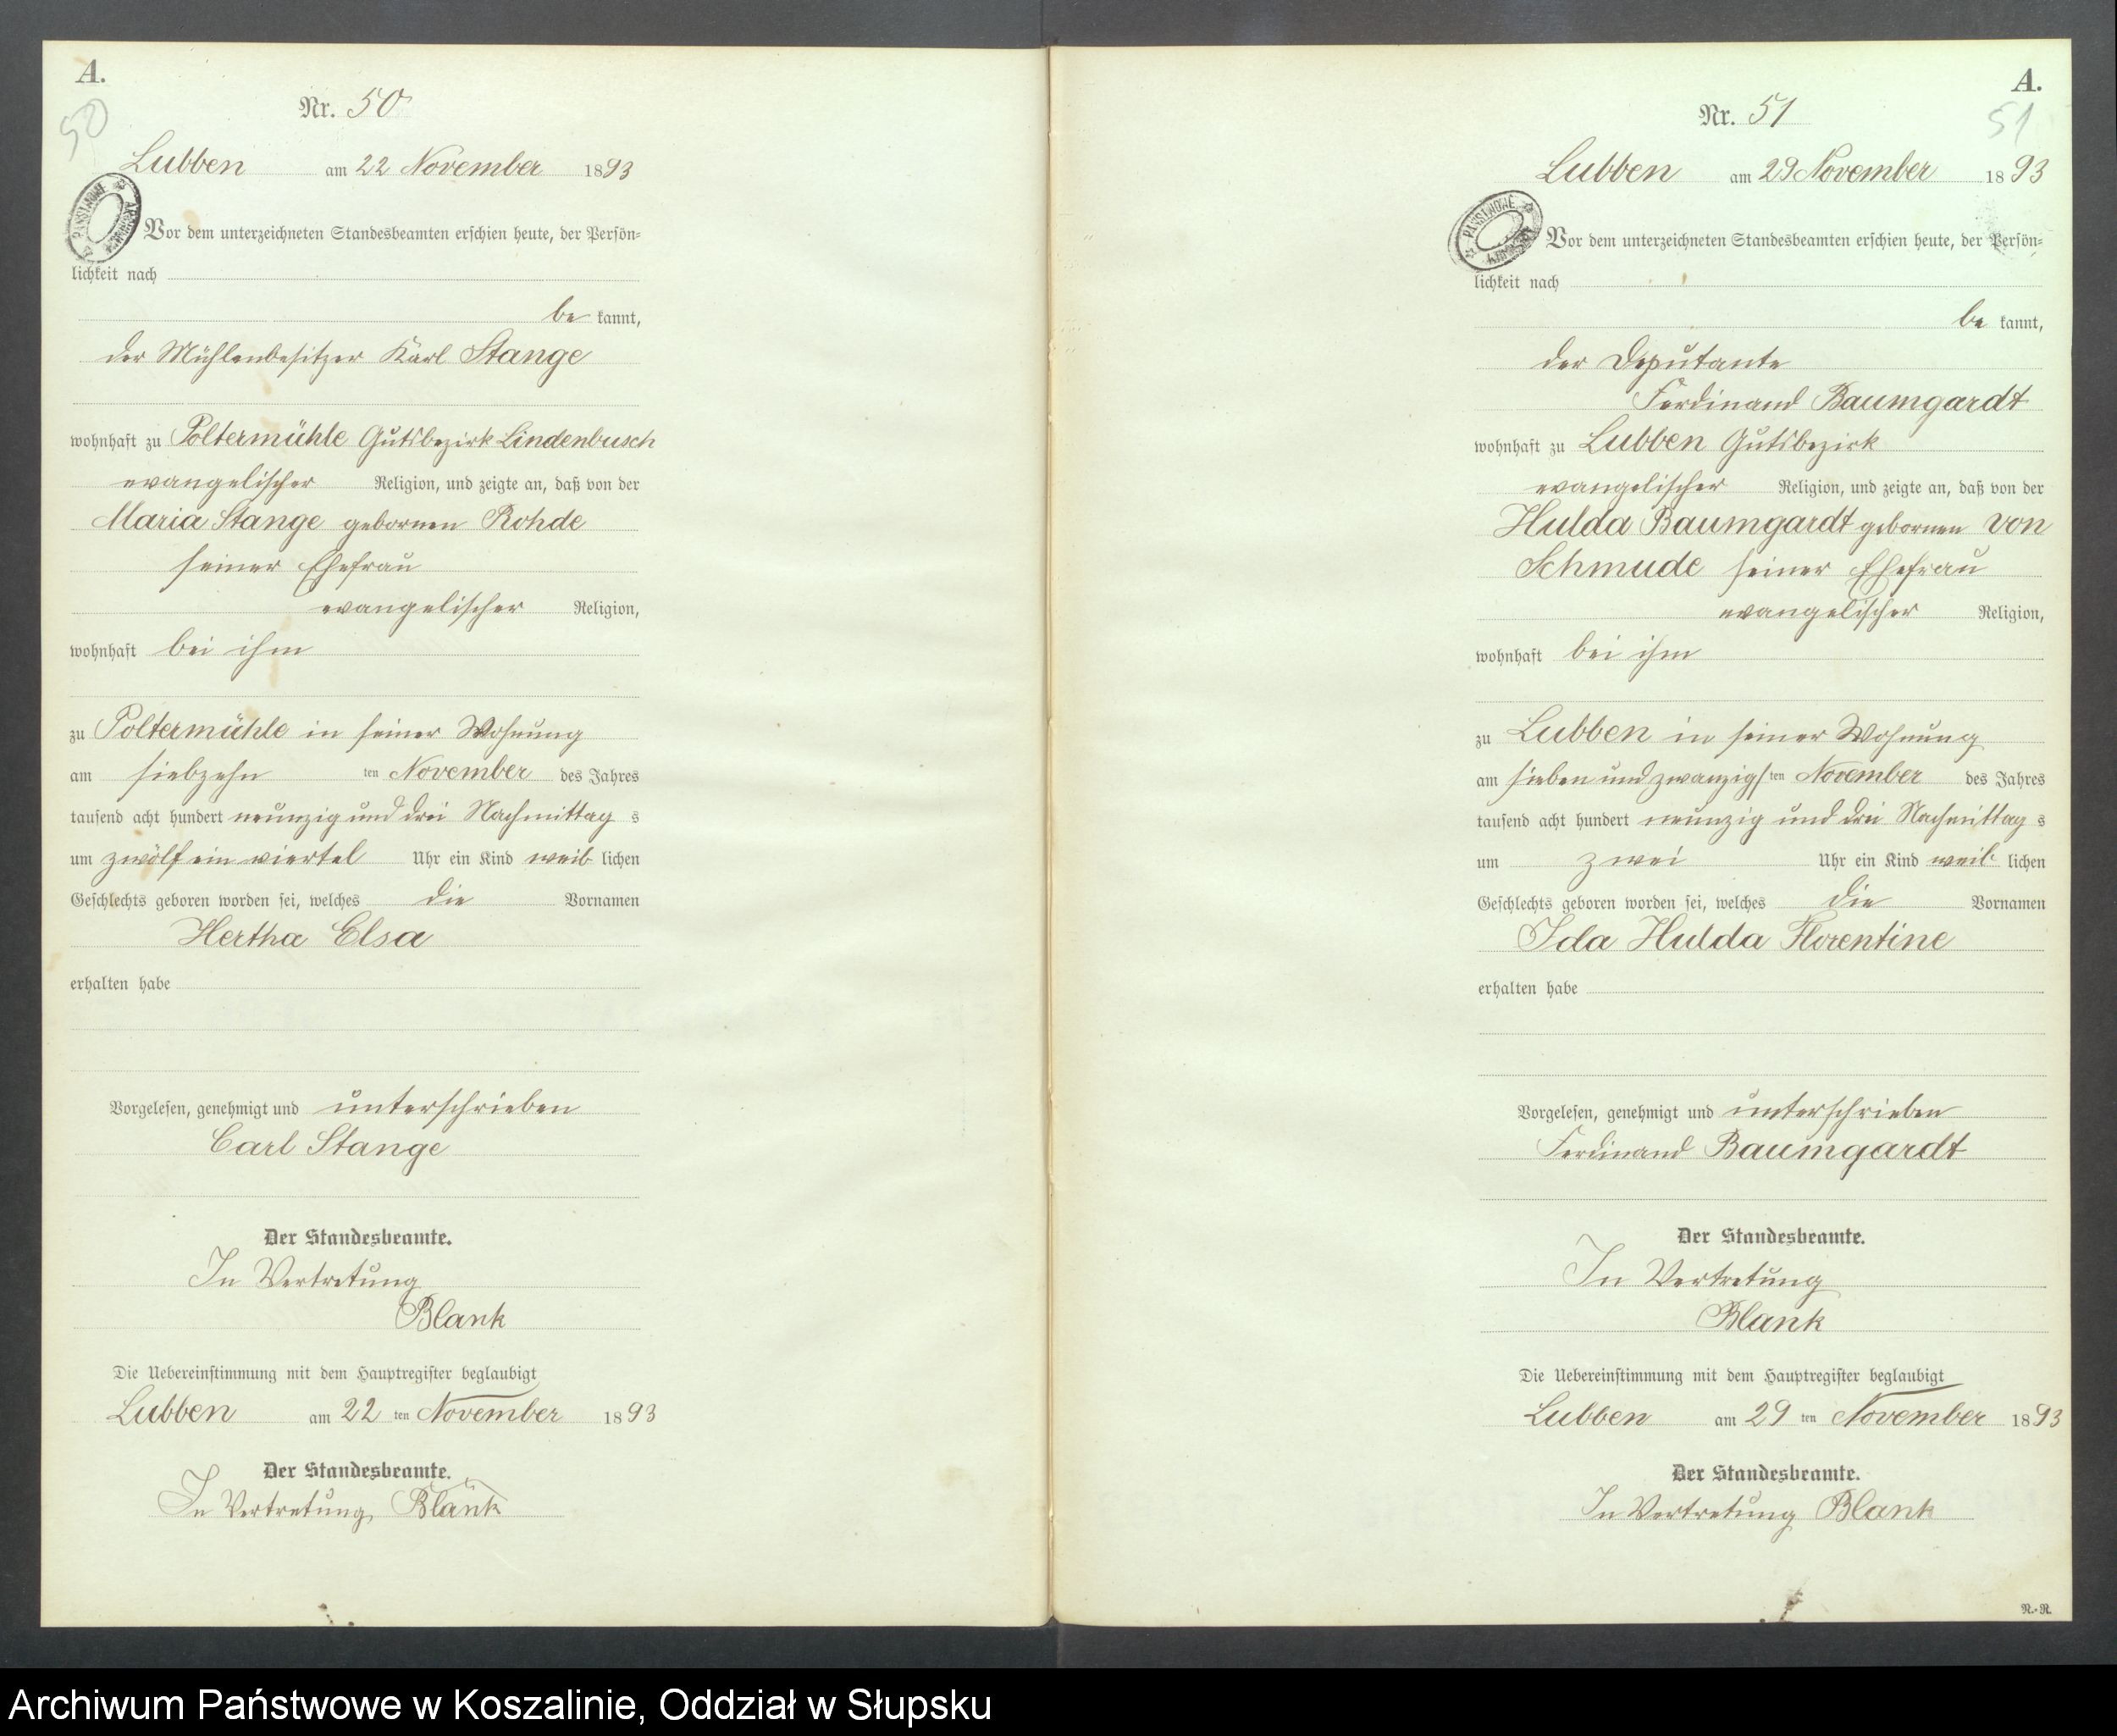 A.
50
Nr. 50
Lubben am 22 November 1893
PAŃSTWOWE ARCHIWUM
Vor dem unterzeichneten Standesbeamten erschien heute, der Persön=
lichkeit nach
be kannt,
der Mühlenbesitzer Karl Stange
wohnhaft zu Poltermühle Gutsbezirk Lindenbusch
evangelischer Religion, und zeigte an, daß von der
Maria Stange gebornen Rohde
seiner Ehefrau
evangelischer Religion,
wohnhaft bei ihm
zu Poltermühle in seiner Wohnung
am siebzehn ten November des Jahres
tausend acht hundert neunzig und drei Nachmittag s
um zwölf ein viertel Uhr ein Kind weib lichen
Geschlechts geboren worden sei, welches die Vornamen
Hertha Elsa
erhalten habe
Vorgelesen, genehmigt und unterschrieben
Carl Stange
Der Standesbeamte.
In Vertretung
Blank
Die Uebereinstimmung mit dem Hauptregister beglaubigt
Lubben am 22 ten November 1893
Der Standesbeamte.
In Vertretung, Blank
A.
51
Nr. 51
Lubben am 29 November 1893
PAŃSTWOWE ARCHIWUM
Vor dem unterzeichneten Standesbeamten erschien heute, der Persön=
lichkeit nach
be kannt,
der Deputante
Ferdinand Baumgardt
wohnhaft zu Lubben Gutsbezirk
evangelischer Religion, und zeigte an, daß von der
Hulda Baumgardt gebornen von
Schmude seiner Ehefrau
evangelischer Religion,
wohnhaft bei ihm
zu Lubben in seiner Wohnung
am sieben und zwanzigs ten November des Jahres
tausend acht hundert neunzig und drei Nachmittag s
um zwei Uhr ein Kind weib lichen
Geschlechts geboren worden sei, welches die Vornamen
Ida Hulda Florentine
erhalten habe
Vorgelesen, genehmigt und unterschrieben
Ferdinand Baumgardt
Der Standesbeamte.
In Vertretung
Blank
Die Uebereinstimmung mit dem Hauptregister beglaubigt
Lubben am 29 ten November 1893
Der Standesbeamte.
In Vertretung Blank
N.-R.
Archiwum Państwowe w Koszalinie, Oddział w Słupsku